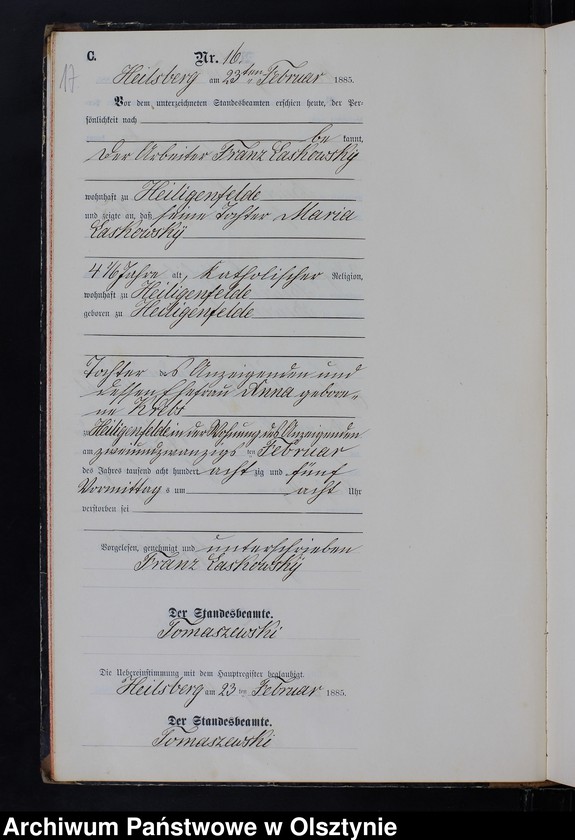 17
C.
Nr. 16.
Heilsberg am 23ten Februar 1885.
Vor dem unterzeichneten Standesbeamten erschien heute, der Per-
sönlichkeit nach
be kannt,
der Arbeiter Franz Laskowsky
wohnhaft zu Heiligenfelde
und zeigte an, daß seine Tochter Maria
Laskowsky
4 1/6 Jahre alt, Katholischer Religion,
wohnhaft zu Heiligenfelde
geboren zu Heiligenfelde
Tochter des Anzeigenden und
dessen Ehefrau Anna gebore-
ne Krebt
zu Heiligenfelde in der Wohnung des Anzeigenden
am zweiundzwanzigsten Februar
des Jahres tausend acht hundert acht zig und fünf
Vormittags um acht Uhr
verstorben sei
Vorgelesen, genehmigt und unterschrieben
Franz Laskowsky
Der Standesbeamte.
Tomaszewski
Die Uebereinstimmung mit dem Hauptregister beglaubigt.
Heilsberg am 23 ten Februar 1885.
Der Standesbeamte.
Tomaszewski
Archiwum Państwowe w Olsztynie